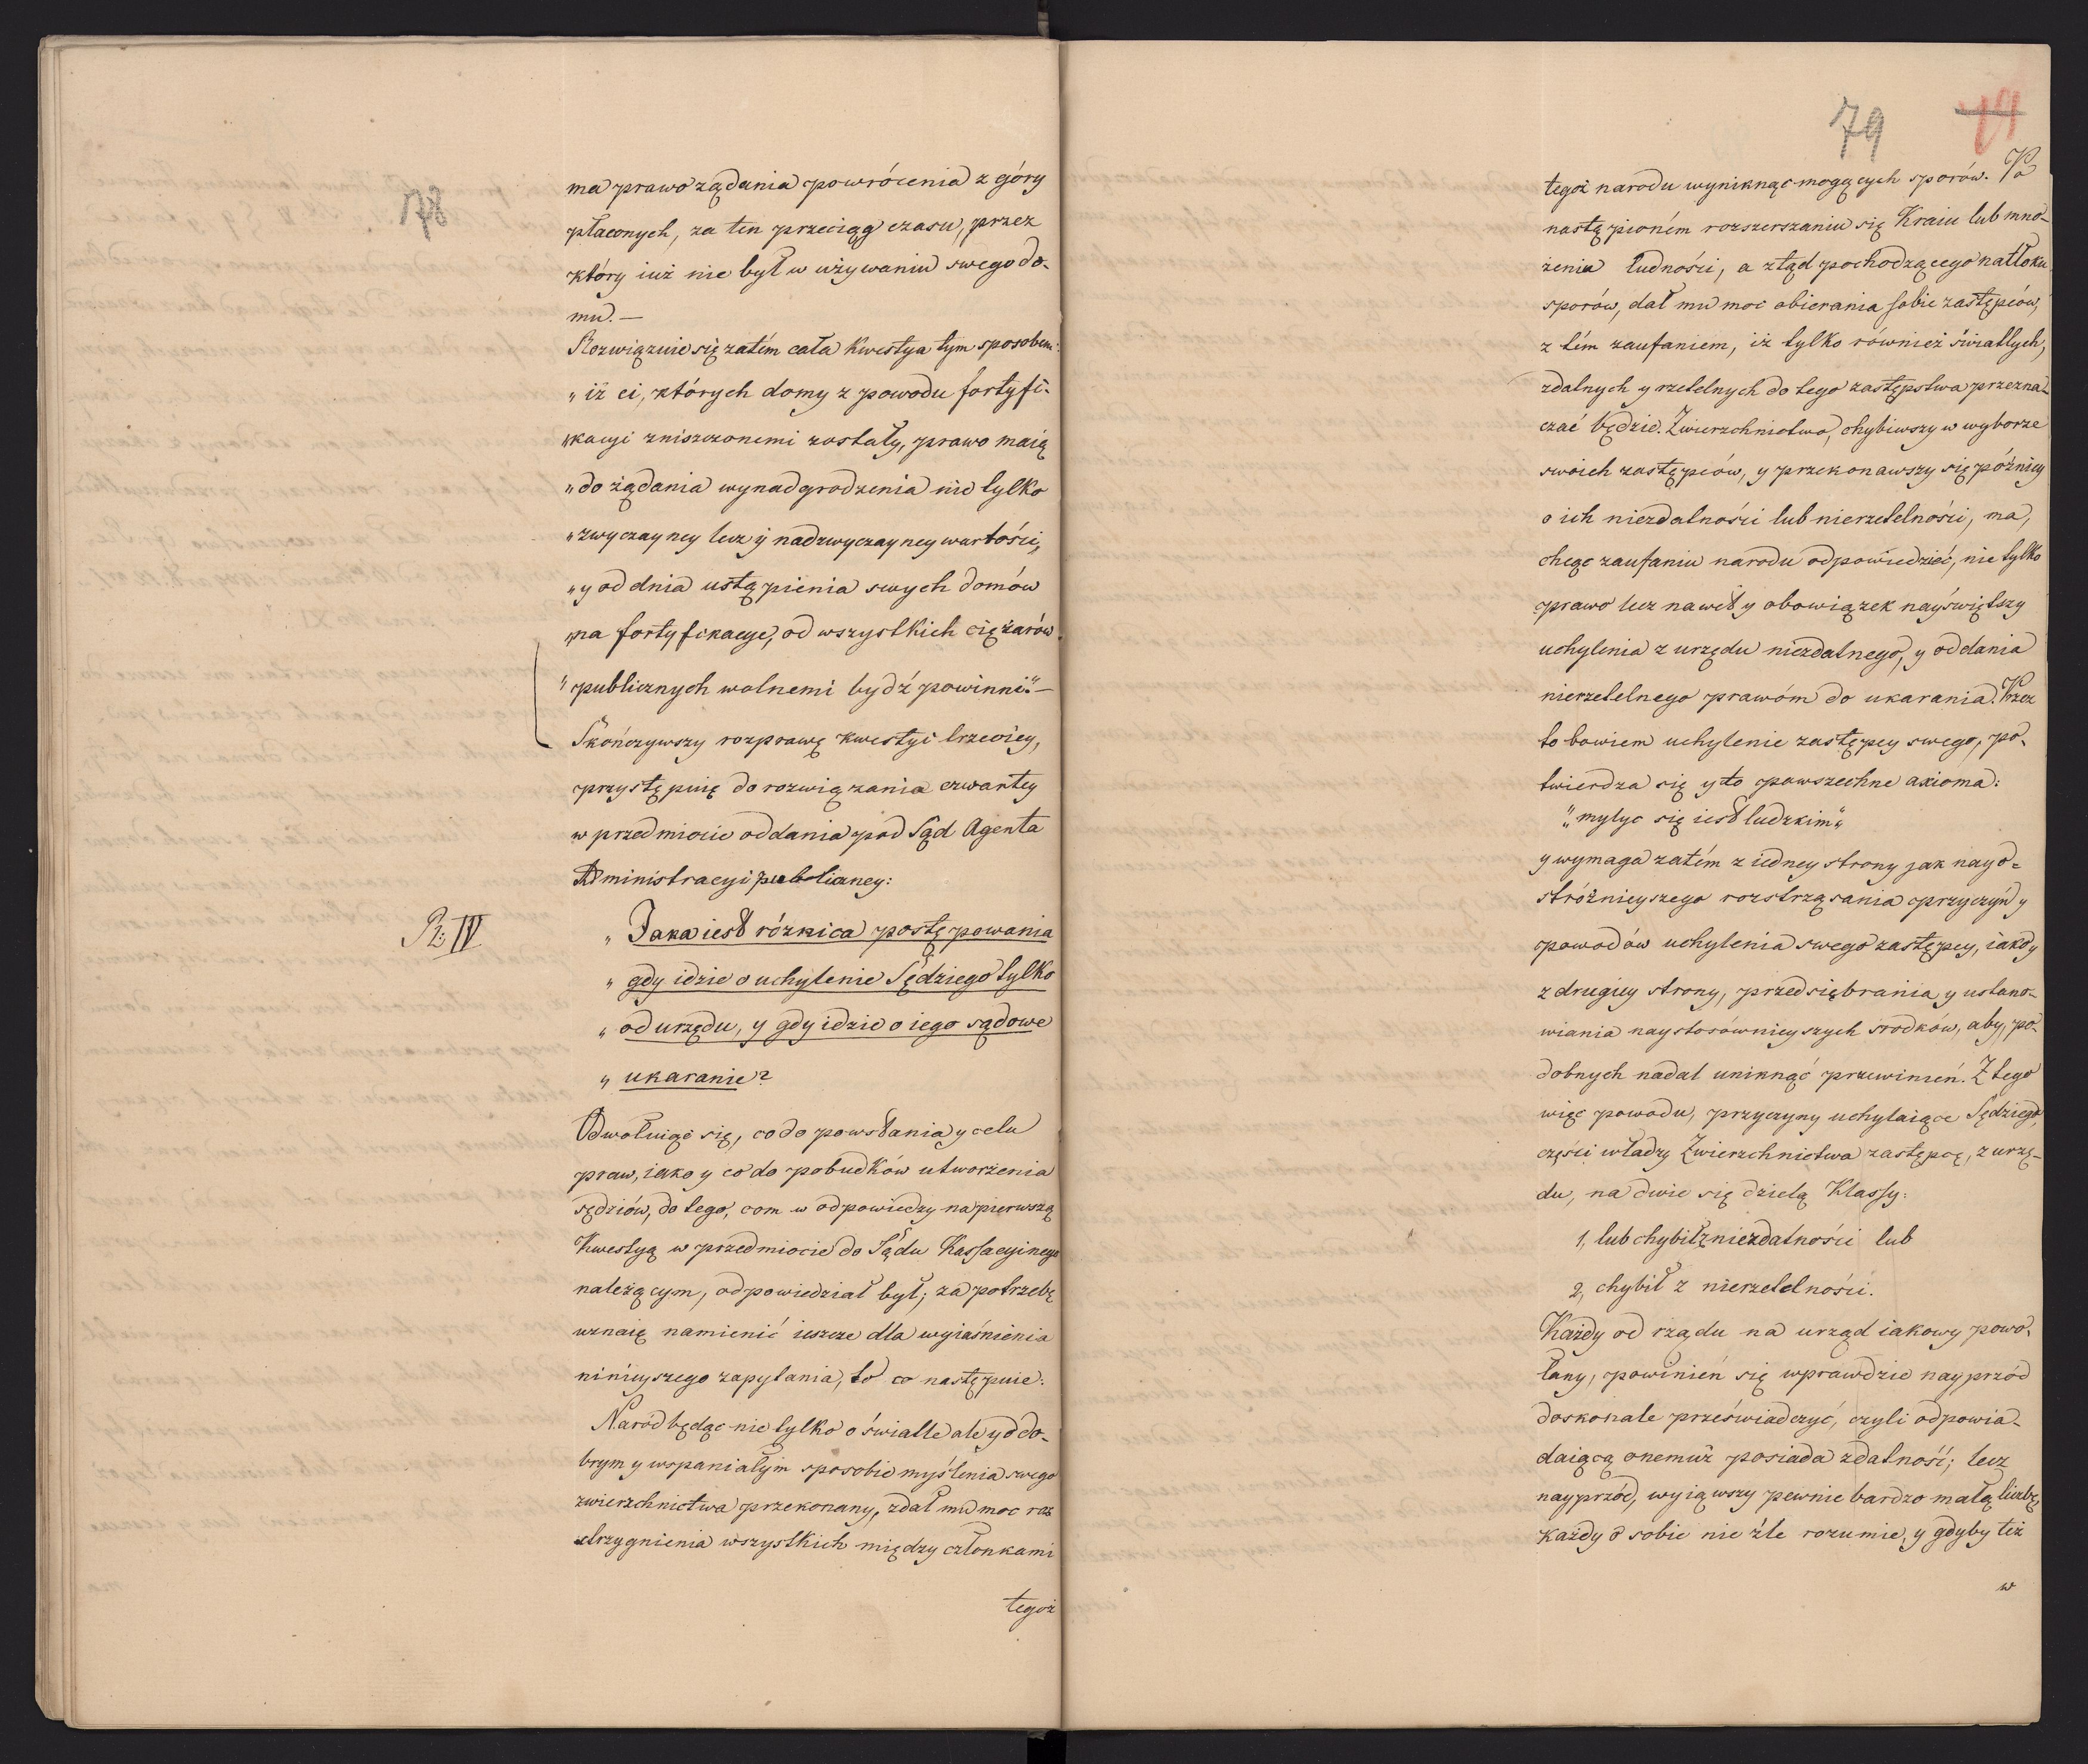 78
ma prawo żądania powrócenia z góry
płaconych, za ten przeciąg czasu, przez
który iuż nie był w używaniu swego do-
mu. —
Rozwiązuie się zatém cała Kwestya tym sposobem:
„ iż ci, których domy z powodu fortyfi-
„kacyi zniszczonemi zostały, prawo maią
„ do żądania wynadgrodzenia nie tylko
„ zwyczayney lecz y nadzwyczayney wartości,
„ y od dnia ustąpienia swych domów
„na fortyfikacye, od wszystkich ciężarów
„ publicznych wolnemi bydź powinni." —
Skończywszy rozprawę kwestyi trzeciey,
przystępuię do rozwiązania czwartey
w przedmiocie oddania pod Sąd Agenta
Administracyi publiczney:
Pr: IV
„ Jaka iest róznica postępowania
„ gdy idzie o uchylenie Sędziego tylko
„ od urzędu, y gdy idzie o iego sądowe
„ ukaranie?
Odwołuiąc się, co do powstania y celu
praw, iako y co do pobudków utworzenia
sędziów, do tego, com w odpowiedzy na pierwszą
Kwestyą w przedmiocie do Sądu Kassacyinego
należącym, odpowiedział był; za potrzebę
uznaię namienić ieszcze dla wyiaśnienia
ninieyszego zapytania, to co następuie:
Naród będąc nie tylko o świalle ale y o do-
brym y wspaniałym sposobie myślenia swego
zwierzchnictwa przekonany, zdał mu moc roz
strzygnienia wszystkich między członkami
tegoż
79
tegoż narodu wyniknąć mogących sporów. Po
nastąpioném rozszerszaniu się Kraiu lub mno-
żenia ludności, a ztąd pochodzącego natłoku
sporów, dał mu moc obierania sobie zastępców,
z tém zaufaniem, iż tylko również światłych,
zdalnych y rzetelnych do tego zastępstwa przezna-
czać będzie. Zwierzchnictwo, chybiwszy w wyborze
swoich zastępców, y przekonawszy się późniey
o ich niezdalności lub nierzetelności, ma,
chcąc zaufaniu narodu odpowiedzieć, nie tylko
prawo lecz nawet y obowiązek nayświętszy
uchylenia z urzędu niezdalnego, y oddania
nierzetelnego prawóm do ukarania. Przez
to bowiem uchylenie zastępcy swego, po-
twierdza się y to powszechne axioma:
„ mylyc się iest ludzkim „
y wymaga zatém z iedney strony jak nayo-
strożnieyszego rozstrząsania przyczyń y
powodów uchylenia swego zastępcy, iako y
z drugiey strony, przedsiębrania y ustano-
wiania naystosównieyszych środków, aby, po-
dobnych nadal uniknąć przewinień. Z tego
więc powodu, przyczyny uchylaiące Sędziego,
części władzy Zwierzchnictwa zastępcę, z urzę-
du, na dwie się dzielą Klassy:
1, lub chybił z niezdatności lub
2, chybił z nierzetelności.
Każdy od rządu na urząd iakowy powo-
łany, powinień się wprawdzie nayprzód
doskonale przeświadczyć, czyli odpowia-
daiącą onemuż posiada zdalność; lecz
nayprzód, wyiąwszy pewnie bardzo małą liczbę,
każdy o sobie nie źle rozumie, y gdyby też
w